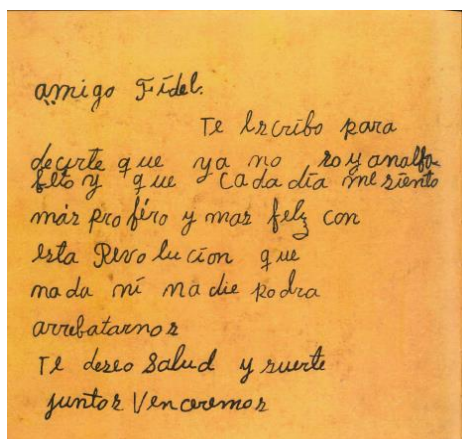 amigo Fidel.
Te Escribo para
decirte que ya no soy analfa-
beto y que cada día me siento
más profiro y mas feliz con
esta Revolucion que
nada ni nadie podra
arrebatarnos
Te deseo Salud y suerte
juntos Venceremos